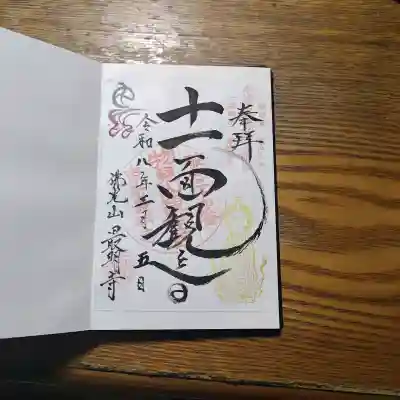 奉拝
十一面観音
令和八年二月五日
佛光山最明寺